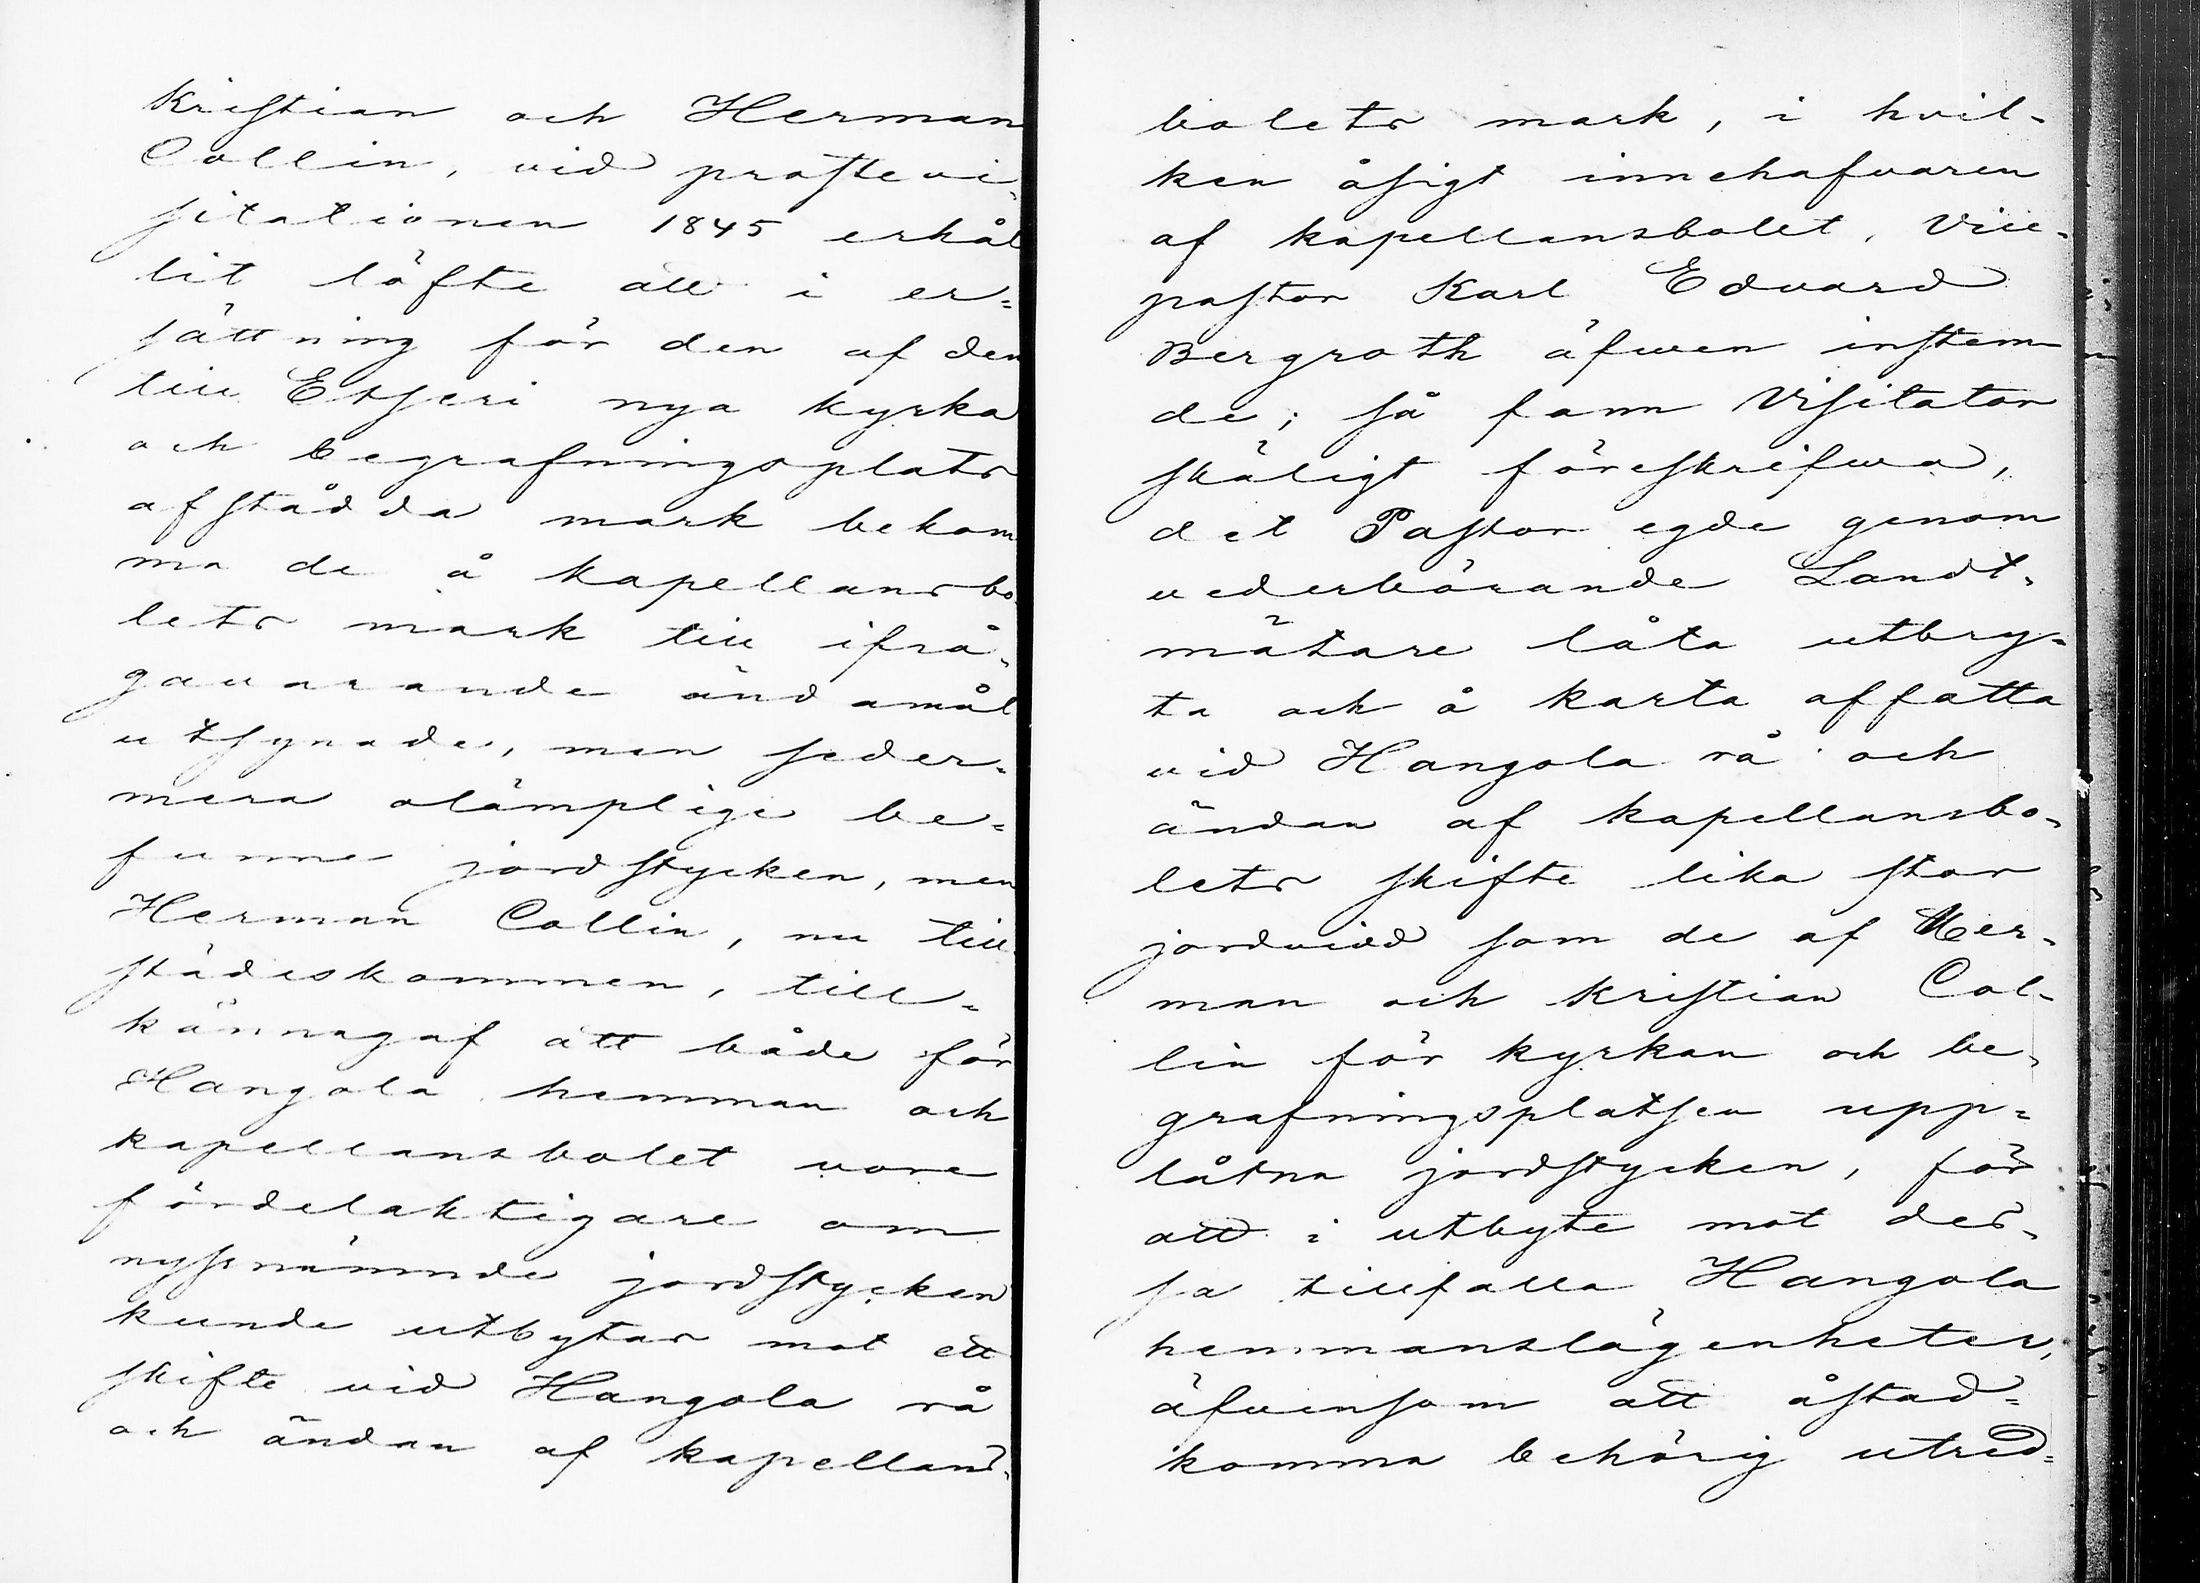 Kristian och Herman
Collin, vid prostevi-
sitationen 1845 erhål
lit löfte att i er-
sättning för den af den
till Etseri nya kyrka
och begrafningsplats
afstådda mark bekom
ma de å kapellansbo-
lets mark till ifrå-
gavarande ändamål
utsynade, men seder-
mera olämplige be-
funne jordstycken, men
Herman Collin, nu till
städeskommen, till-
kännagaf att både för
Hangola hemman och
kapellansbolet vore
fördelaktigare om
nyssnämnde jordstycken
kunde utbytas mot ett
skifte vid Hangola rå
och ändan af kapellans-
bolets mark, i hvil-
ken åsigt innehafvaren
af kapellansbolet, Vice-
pastor Karl Edvard
Bergroth äfwen instem
de; så fann Visitator
skäligt föreskrifwa,
det Pastor egde genom
vederbörande Landt-
mätare låta utbry-
ta och å karta affatta
vid Hangola rå och
ändan af kapellansbo-
lets skifte lika stor
jordvidd som de af Her-
man och Kristian Col-
lin för kyrkan och be-
grafningsplatsen upp-
låtna jordstycken, för
att i utbyte mot des-
sa tillfalla Hangola
hemmanslägenheter,
äfvensom att åstad-
komma behörig utred-